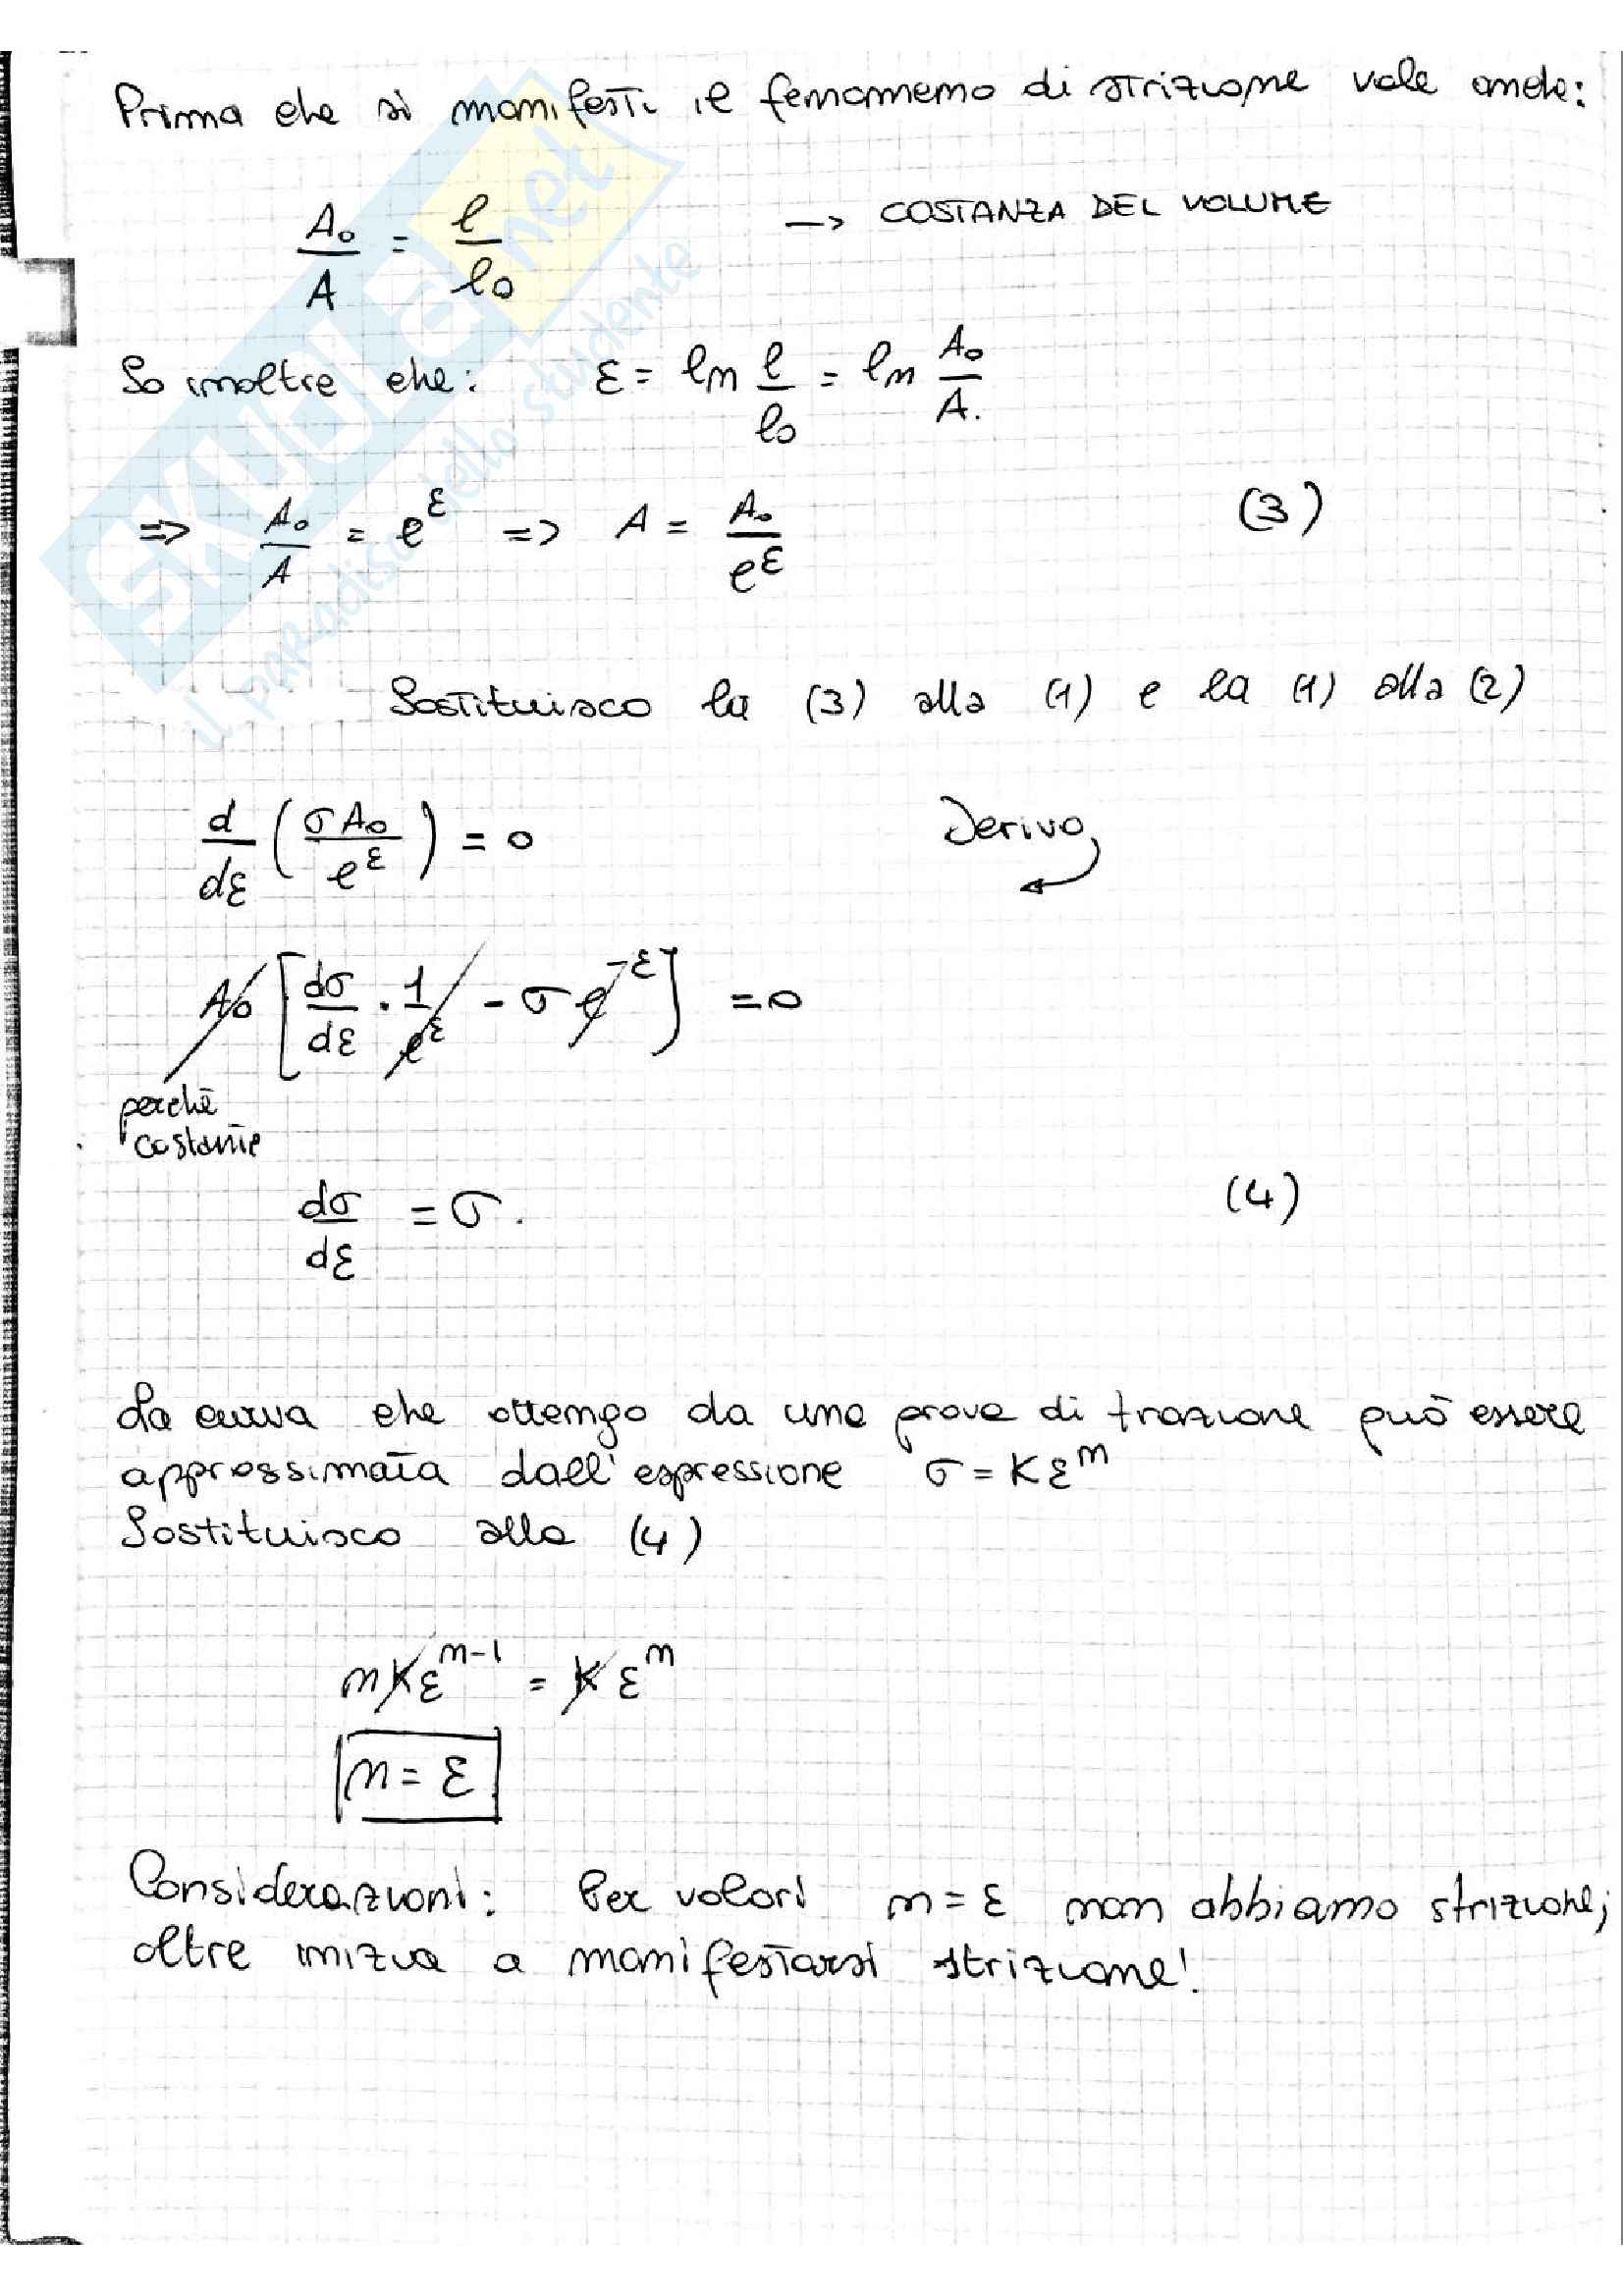 Prima che si manifesti il fenomeno di strizione vale anche:
A₀/A = l/l₀ -> COSTANZA DEL VOLUME
So inoltre che: ε = ln l/l₀ = ln A₀/A.
=> A₀/A = e^ε => A = A₀/e^ε (3)
Sostituisco la (3) alla (1) e la (1) alla (2)
d/dε (σA₀/e^ε) = 0 Derivo
A₀ [dσ/dε · 1/e^ε - σ e^-ε] = 0
perchè
costante
dσ/dε = σ. (4)
La curva che ottengo da una prova di trazione può essere
approssimata dall'espressione σ = Kε^n
Sostituisco alla (4)
nKε^n-1 = Kε^n
n = ε
Considerazioni: Per valori n = ε non abbiamo strizione;
oltre inizia a manifestarsi strizione!
SKUOLA.net
il paradiso dello studente